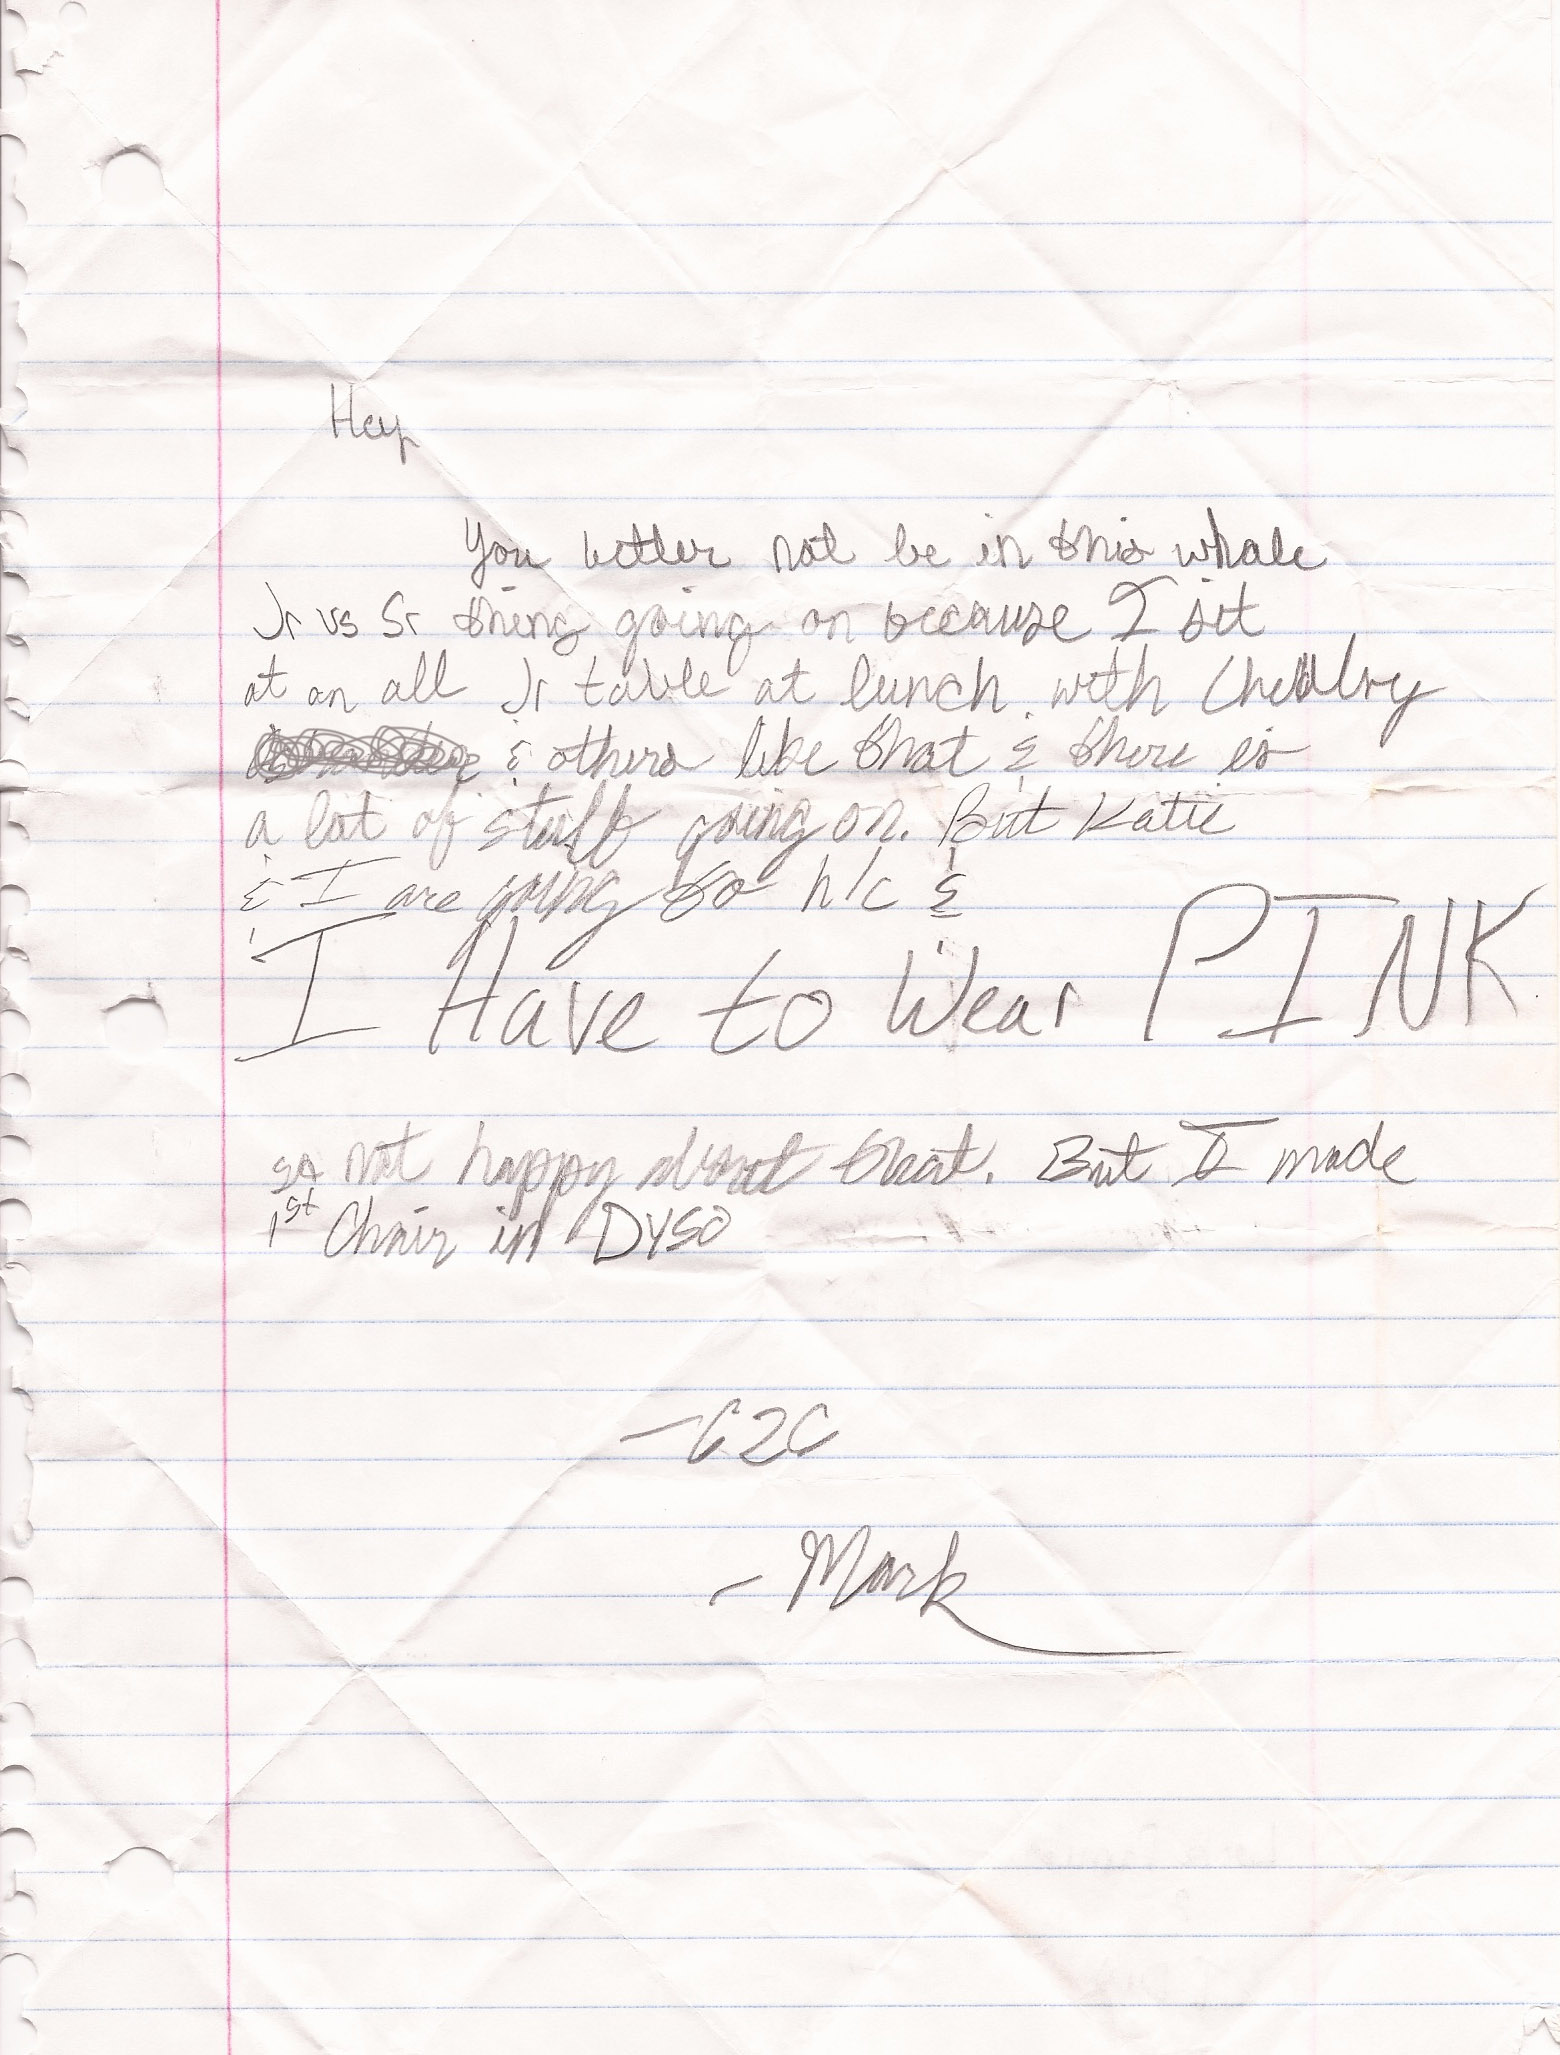 Hey,
You better not be in this whole
Jr vs Sr thing going on because I sit
at an all Jr table at lunch with
& others like that & there is
a lot of stuff going on. But Katie
& I are going to h/c &
I Have to Wear PINK
so not happy about that. But I made
1st Chair in DYSO
-C2C
- Mark